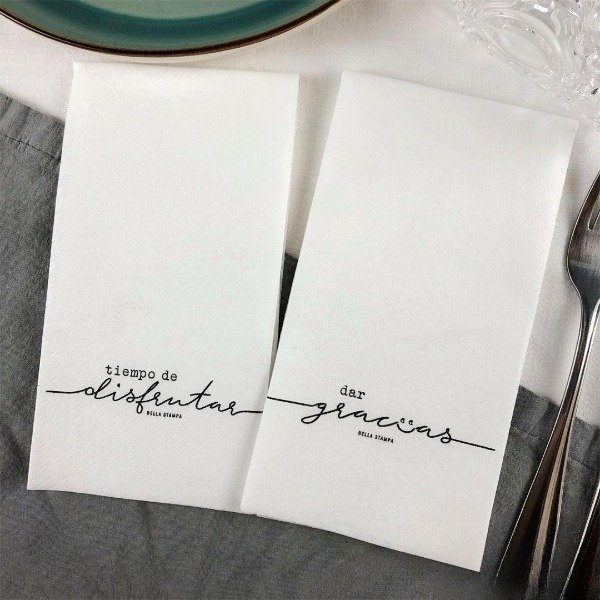 tiempo de
disfrutar
BELLA STAMPA
dar
gracias
BELLA STAMPA